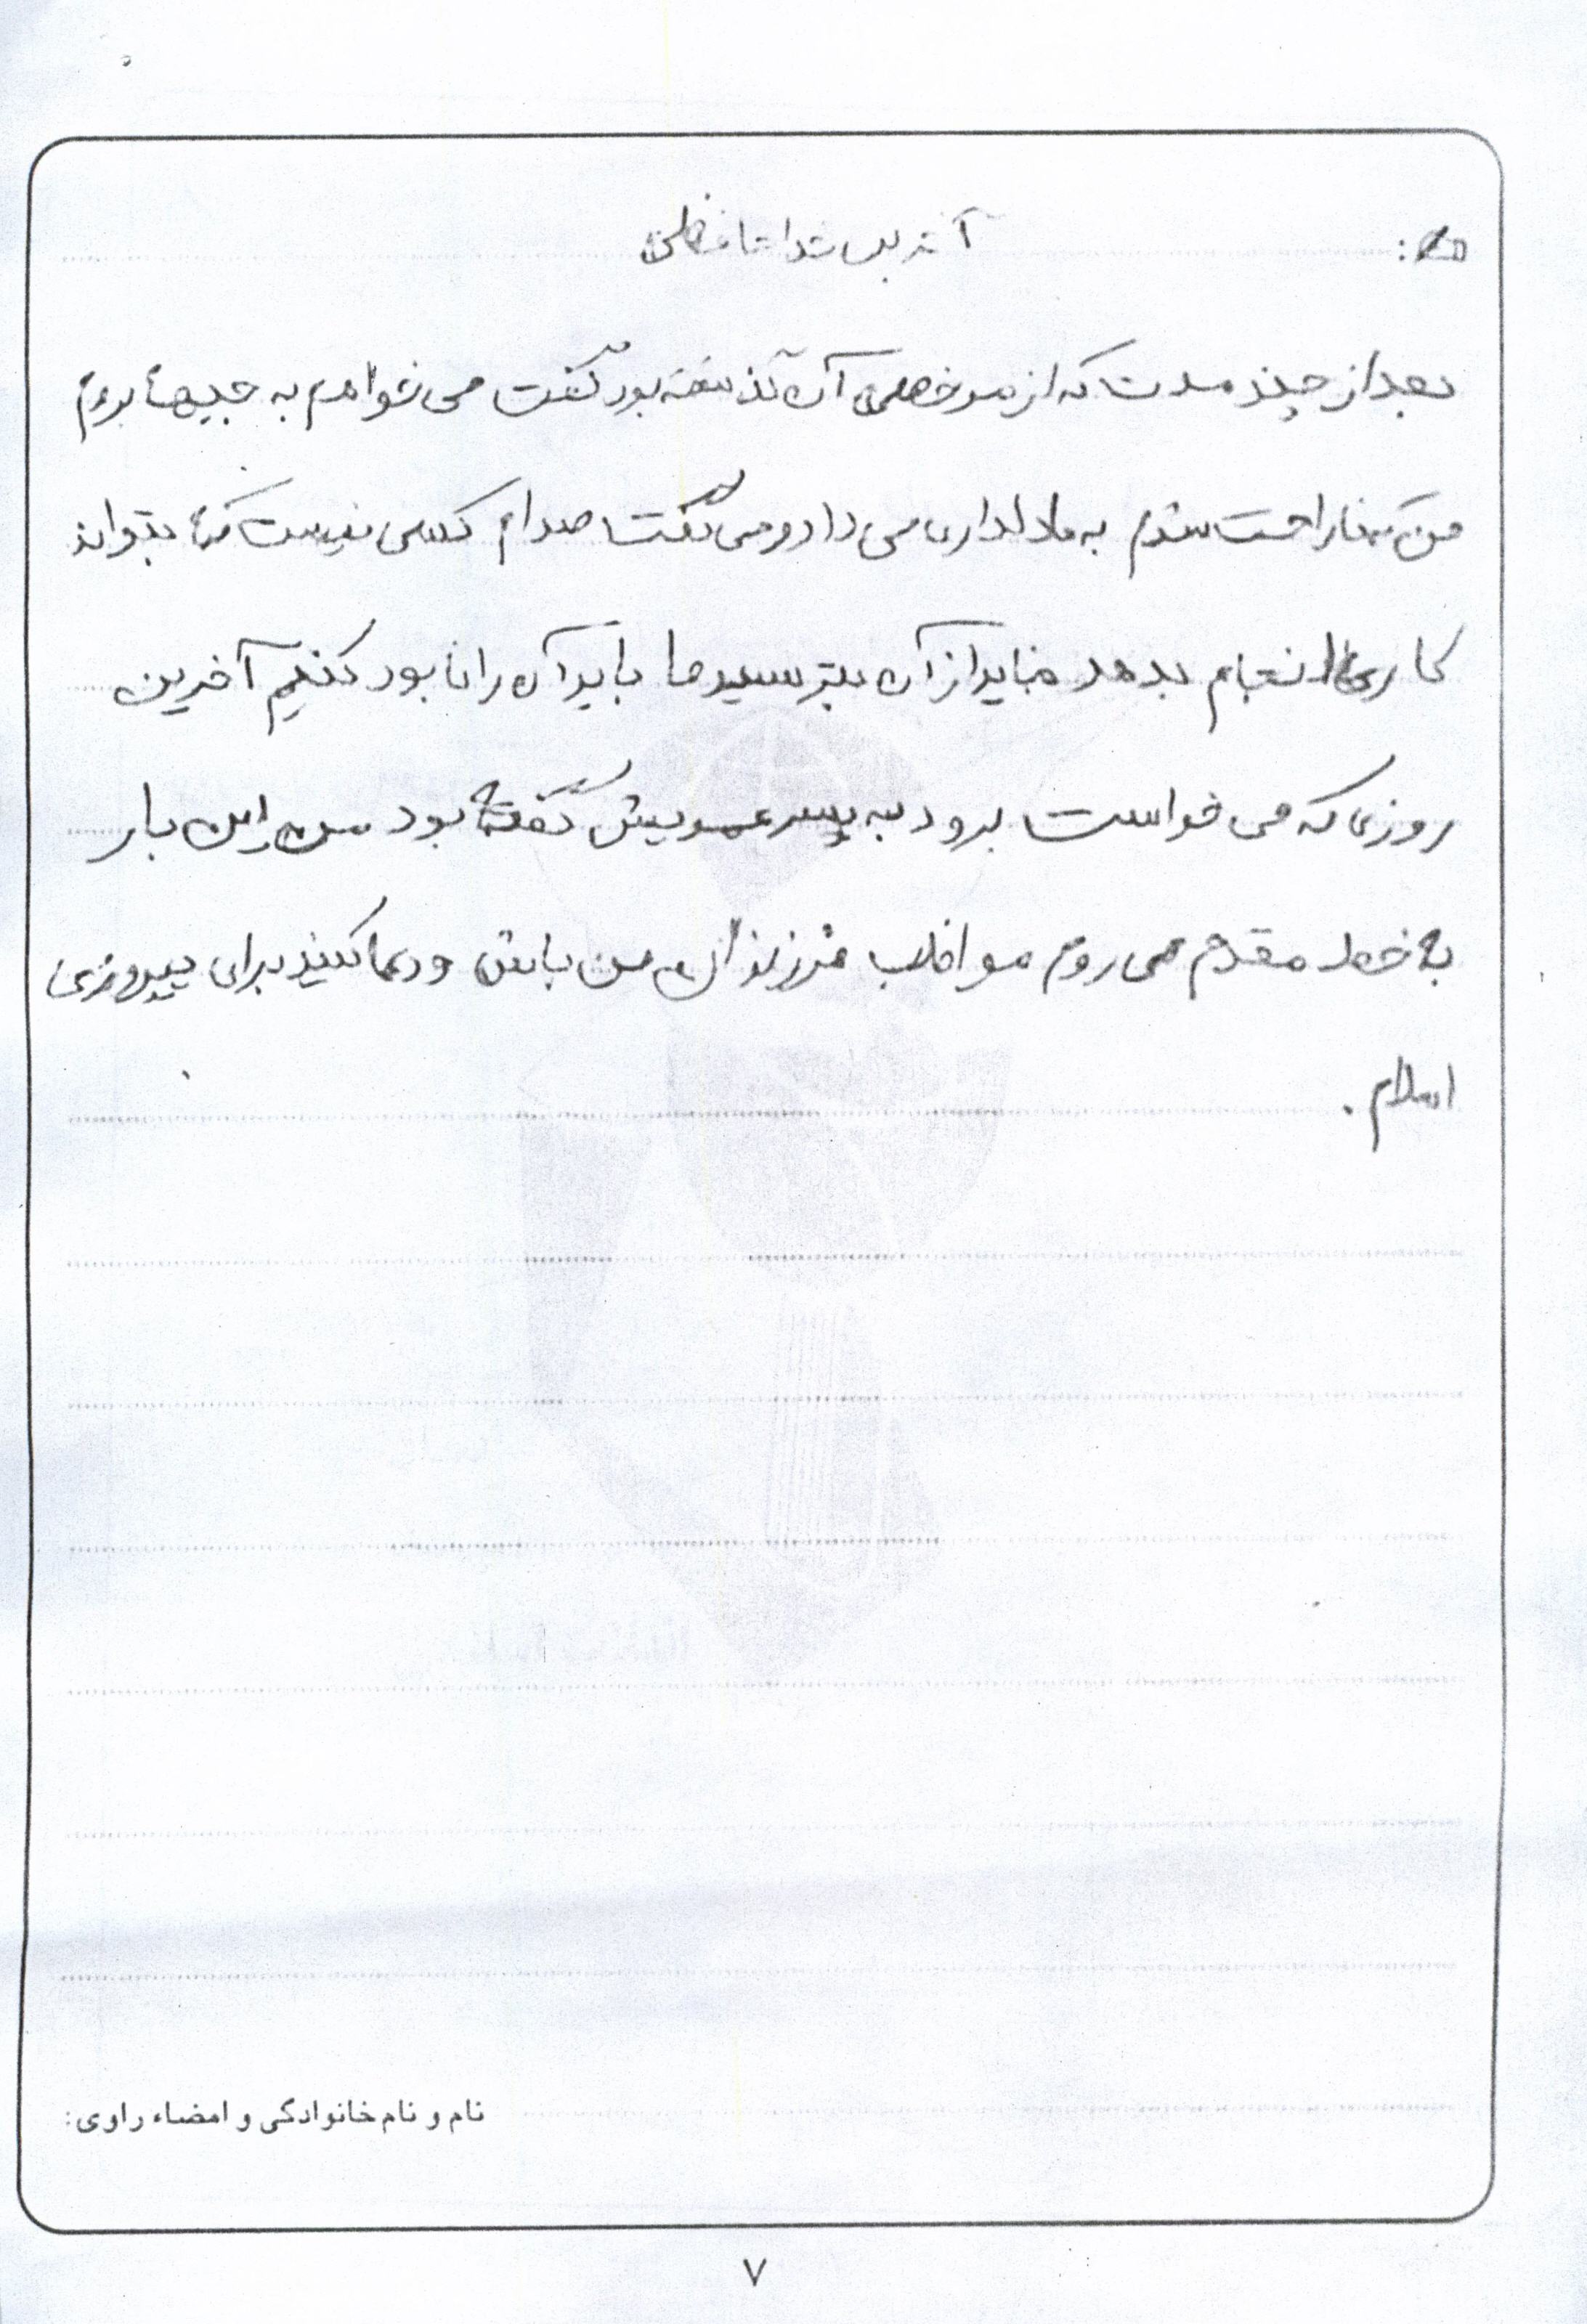 بعد از چند مدت که از مرخصی آن گذشته بود گفت می خواهم به جبهه بروم
من که ناراحت شدم به ما دلداری می داد و می گفت صدام کسی نیست که بتواند
کاری انجام بدهد نباید از آن بترسید ما باید آن را نابود کنیم آخرین
روزی که می خواست برود به پسر عمویش گفته بود من این بار
به خط مقدم می روم مواظب فرزندان من باش و دعا کنید برای پیروزی
اسلام .
نام و نام خانوادگی و امضاء راوی:
۷